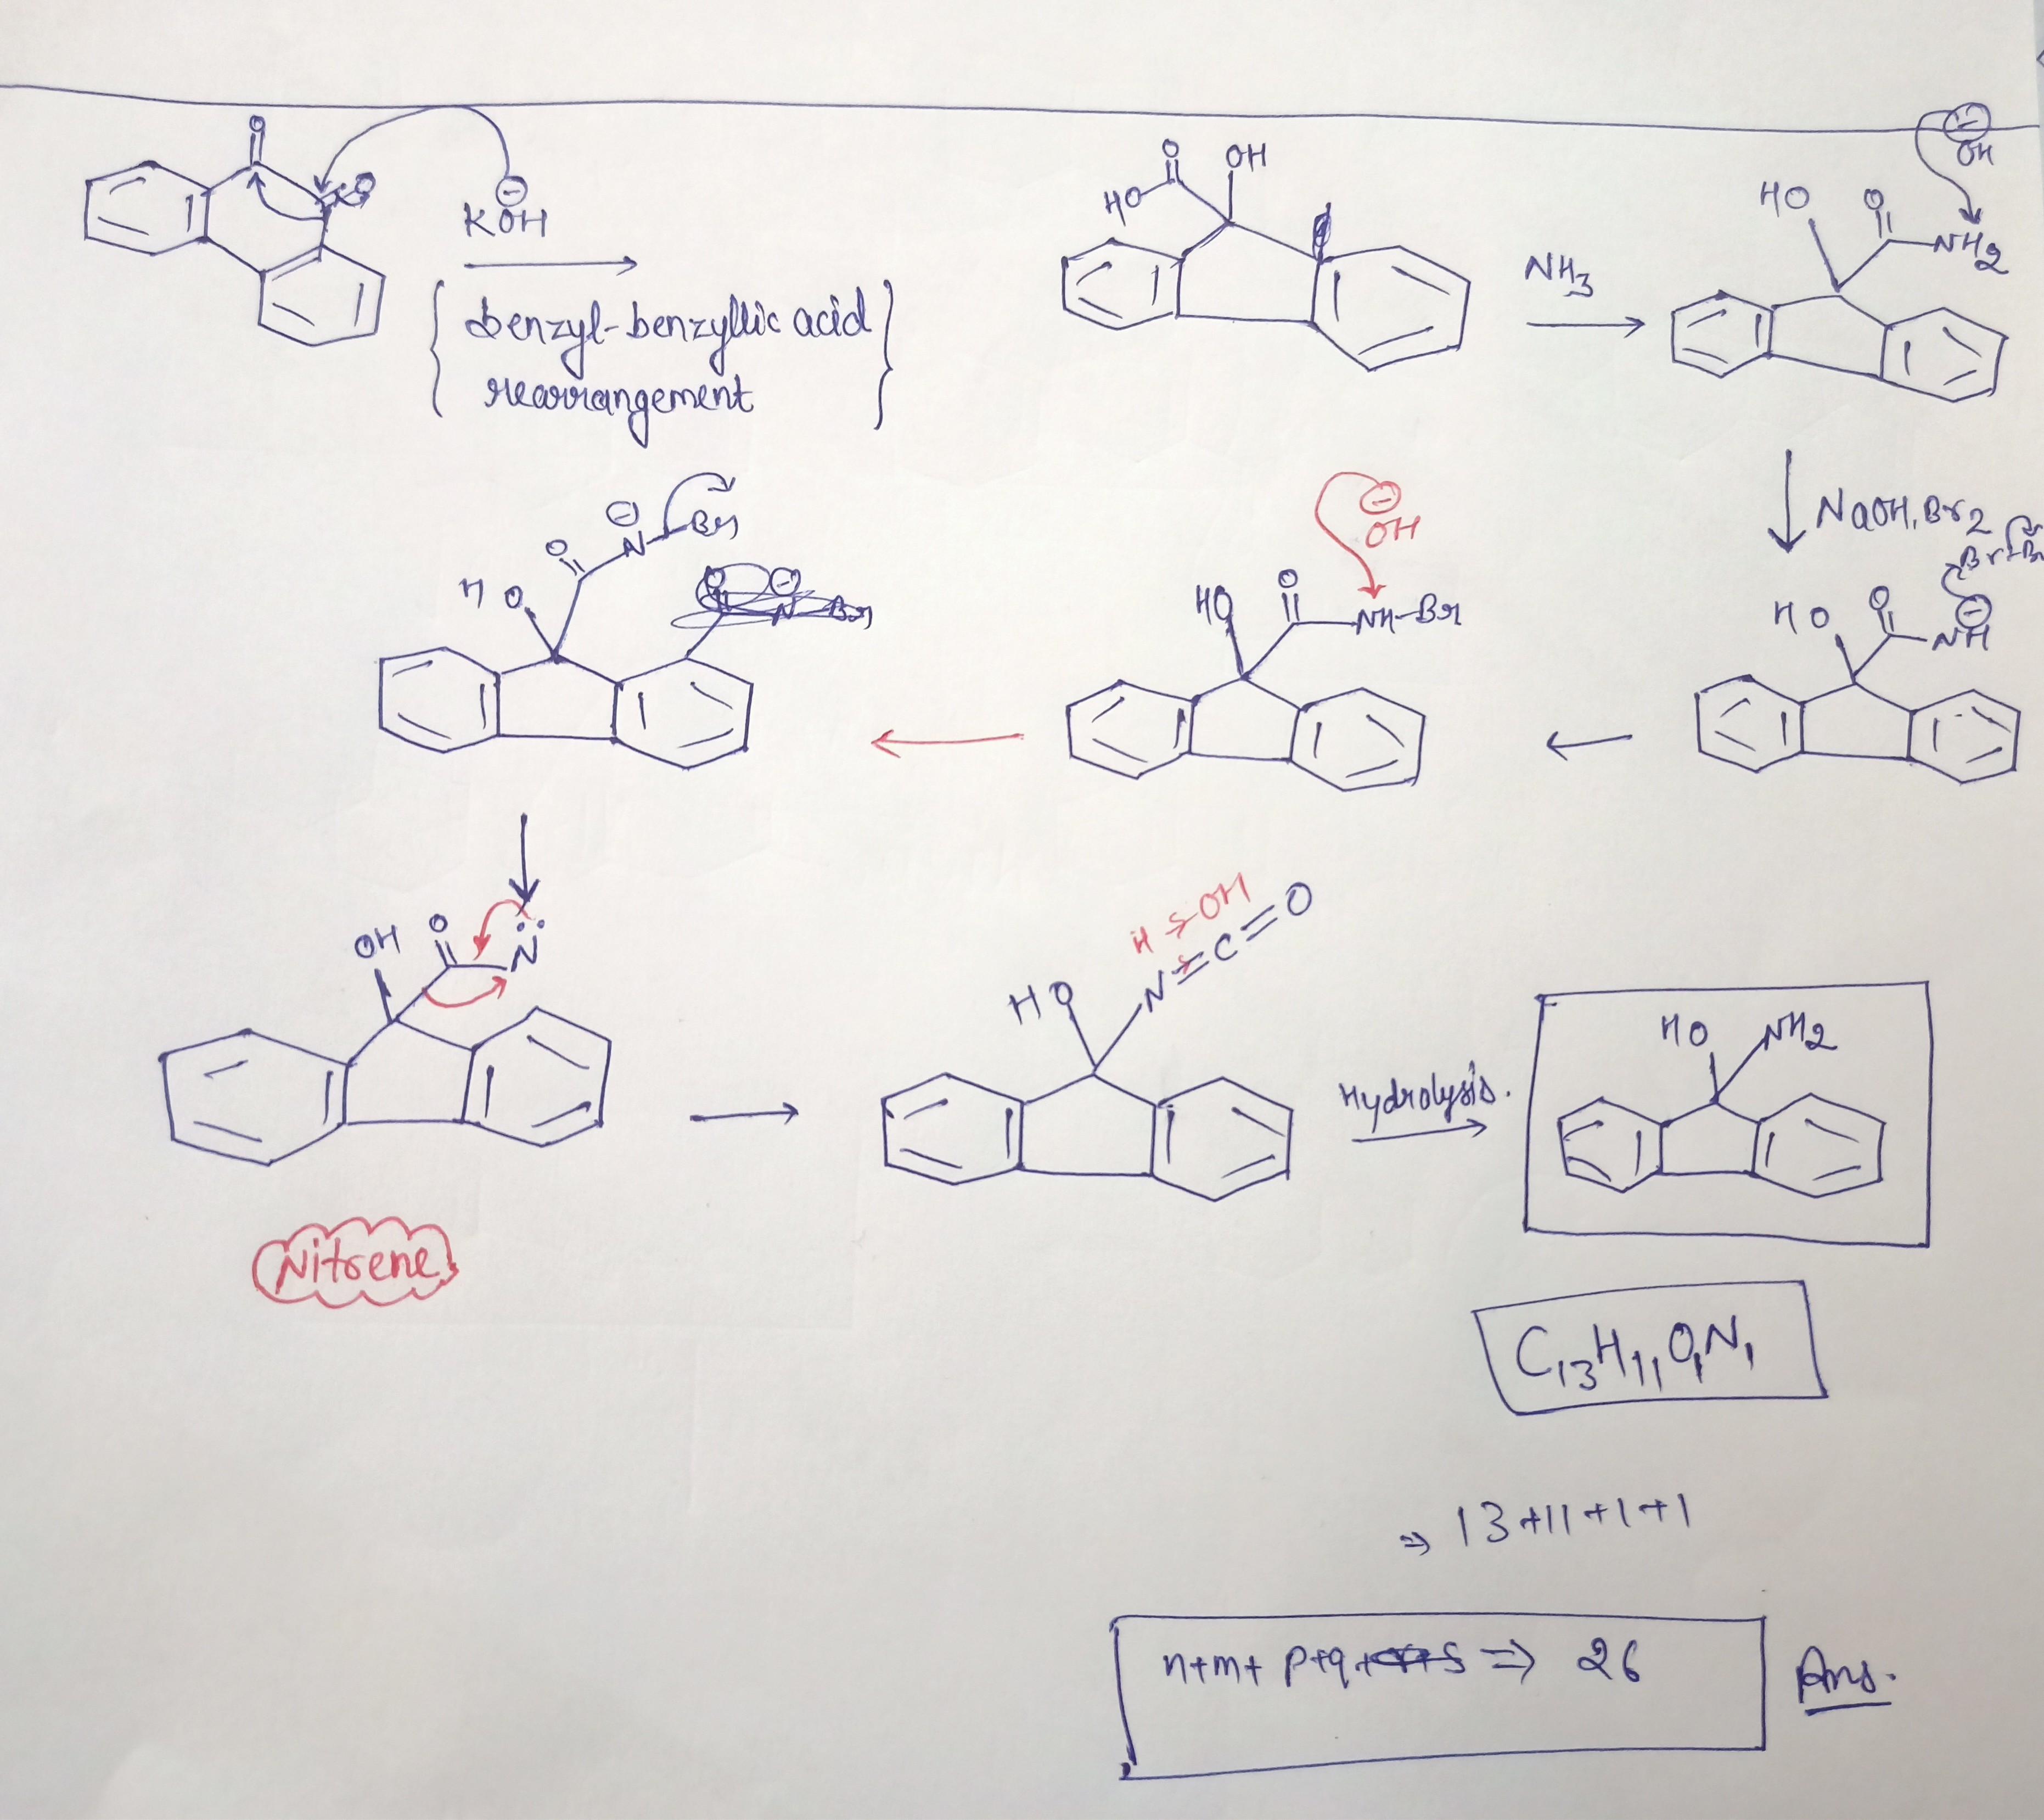 O
O
⊖
KOH
{ benzyl-benzyllic acid
rearrangement }
O OH
HO
NH3
⊖
OH
HO O
NH2
NaOH, Br2
Br-Br
HO O ⊖
NH
⊖
OH
HO O
NH-Br
⊖
O N-Br
H O
OH O N
Nitrene
H OH
HO N=C=O
Hydrolysis.
HO NH2
C13H11O1N1
⇒ 13+11+1+1
n+m+ p+q+s ⇒ 26
Ans.